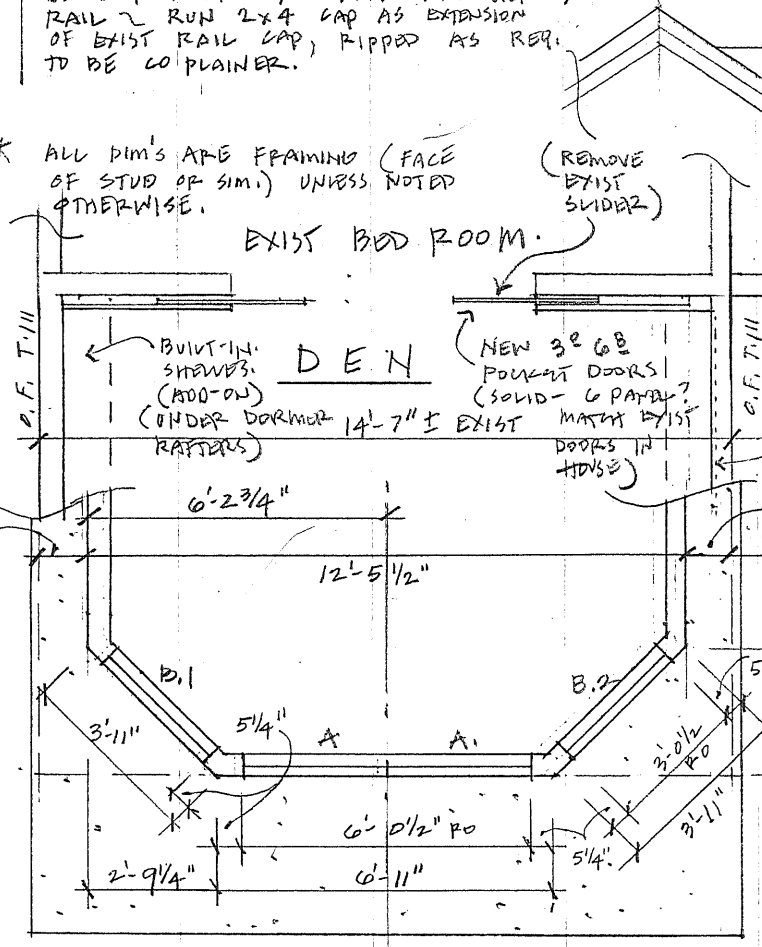 RAIL ~ RUN 2x4 CAP AS EXTENSION
OF EXIST RAIL CAP, RIPPED AS REQ.
TO BE CO PLAINER.
* ALL DIM'S ARE FRAMING (FACE
OF STUD OR SIM.) UNLESS NOTED
OTHERWISE.
(REMOVE
EXIST
SLIDER)
EXIST BED ROOM.
O.F. T.111
BUILT-IN
SHELVES.
(ADD-ON)
(UNDER DORMER
RAFTERS)
DEN
NEW 3⁰ 6⁸
POCKET DOORS
(SOLID - 6 PANEL?
MATCH EXIST
DOORS IN
HOUSE)
O.F. T.111
14'-7" ± EXIST
6'-2 3/4"
12'-5 1/2"
B.1
B.2
3'-11"
5 1/4"
A
A.
5
3'-0 1/2
RO
3'-11"
6'-0 1/2" RO
5 1/4".
2'-9 1/4"
6'-11"